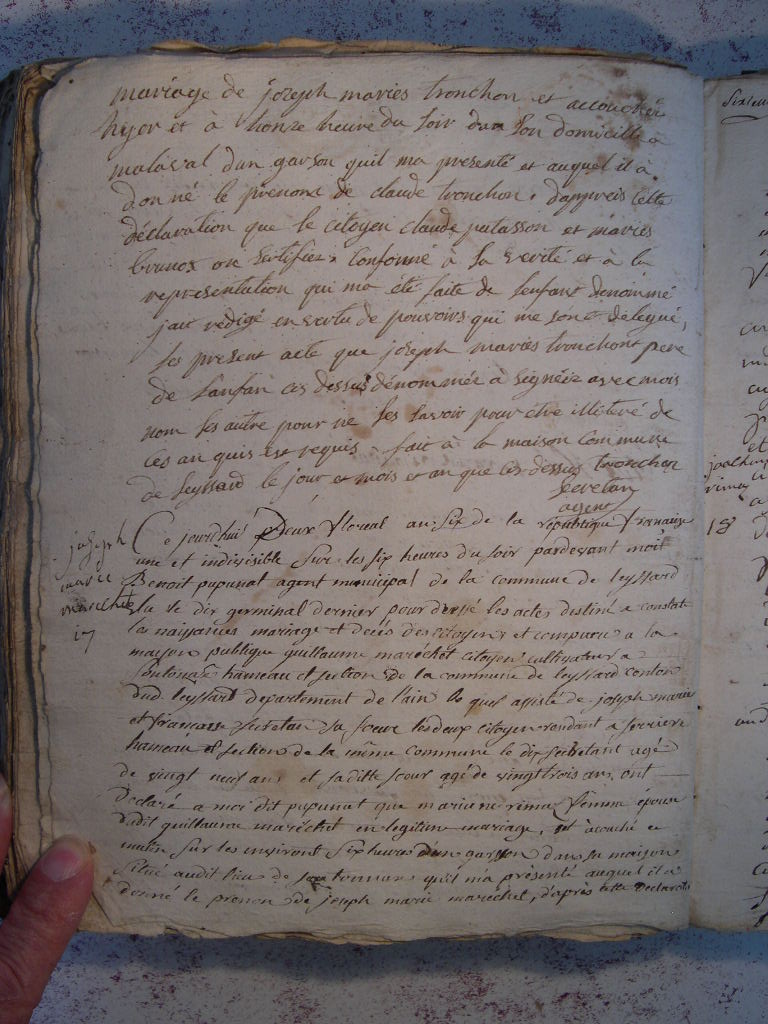 mariage de joseph maries tronchon et accouchée
hyer et à honze heure du soir dan son domicille a
malaval dun garson quil ma presenté et auquel il a
donné le prenons de claude tronchon. dappreis cette
déclaration que le citoyen claude putasson et maries
brunos on sertifiez conforme à la verité et à la
representation qui ma été faite de lenfant denommé
jait redigé en vertu de pouvoirs qui me sont délegué,
les present acte que joseph maries tronchont pere
de lanfan cis dessus dénommée à signéiz avec mois
nom les autre pour ne les savoir pour être illiteré de
ces an quis est requis. fait à la maison commune
de Leyssard le jour et mois et an que cis dessus tronchon
secretan
agent
joseph
marie
marechet
17
Ce jourdhui Deux floreal an six de la république francaize
une et indivisible sur les six heures du soir pardevant moit
Benoit pupunat agent municipal de la commune de leyssard
elu le dix germinal dernier pour dressé les actes destiné a constaté
les naissances mariage et décés des citoyens et comparu a la
maison publique guillaume maréchet citoyen cultivateur a
hameau et section de la commune de leyssard canton
dud. leyssard departement de l'ain le quel assisté de joseph marie
et francoise secretan sa soeur les deux citoyen residant a serrière
hameau et section de la même commune le dit secretant agé
de vingt neuf ans et saditte soeur agé de vingt trois ans, ont
Déclaré a moi dit pupunat que mariene rima femme épouse
dudit guillaume maréchet en legitime mariage, et acouché ce
matin sur les environt six heures d'un garson dans sa maison
situé audit lieu de qu'il m'a présenté auquel il a
donné le prenon de joseph marie maréchet, d'après cette declaration
joachim
rima
18